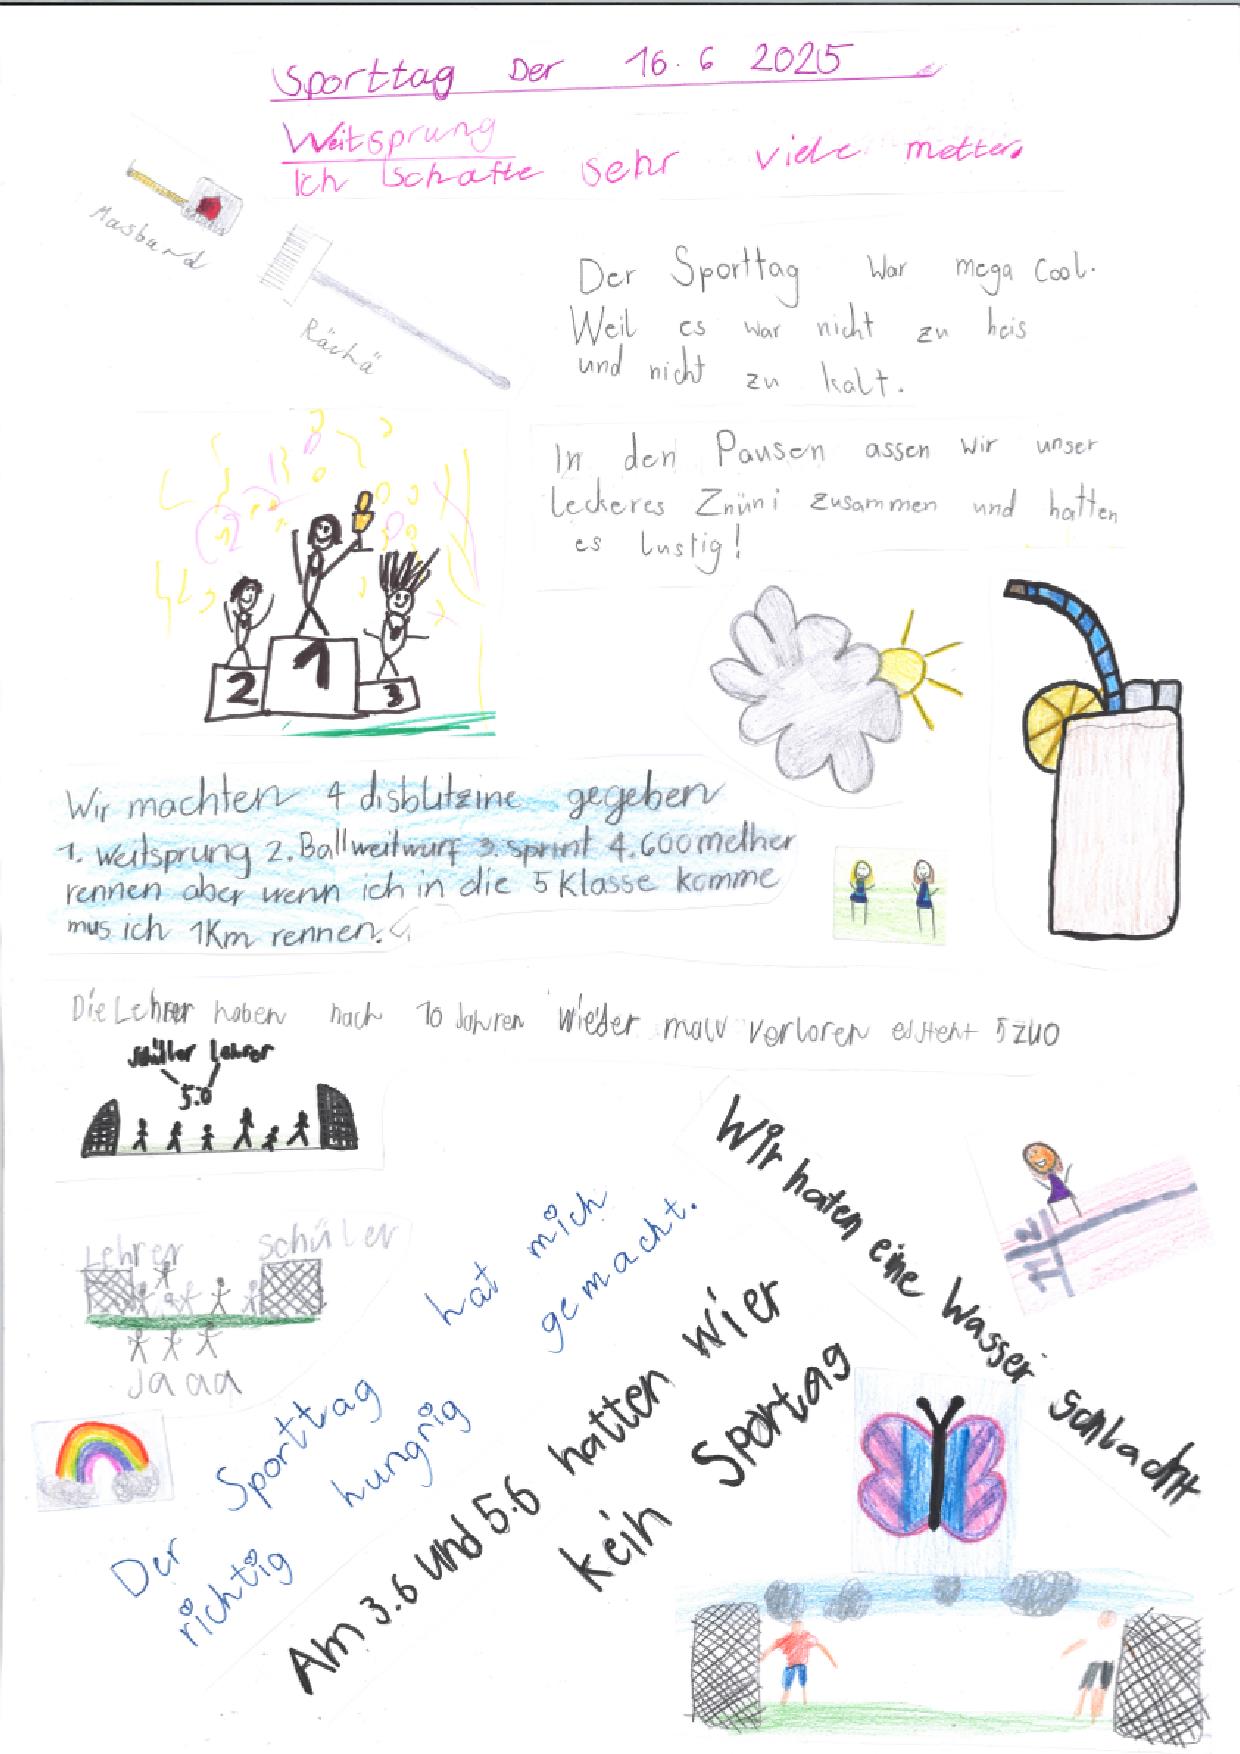 Sporttag Der 16.6 2025
Weitsprung
Ich schafte sehr viele metter.
Masband
Rächä
Der Sporttag war mega cool.
Weil es war nicht zu heis
und nicht zu kalt.
In den Pausen assen wir unser
leckeres Znüni zusammen und hatten
es lustig!
2 1 3
Wir machten 4 disblitzine gegeben
1. Weitsprung 2. Ballweitwurf 3. sprint 4. 600 melher
rennen aber wenn ich in die 5 Klasse komme
mus ich 1Km rennen.
Die Lehrer haben nach 10 Jahren wieder malv verloren es steht 5 zuo
schüller lehrer
5.0
Lehrer Schüler
Jaaa
Der Sporttag hat mich
richtig hungrig gemacht.
Am 3.6 und 5.6 hatten wier
kein Sportag
Wir haten eine Wasser schlacht
1 2